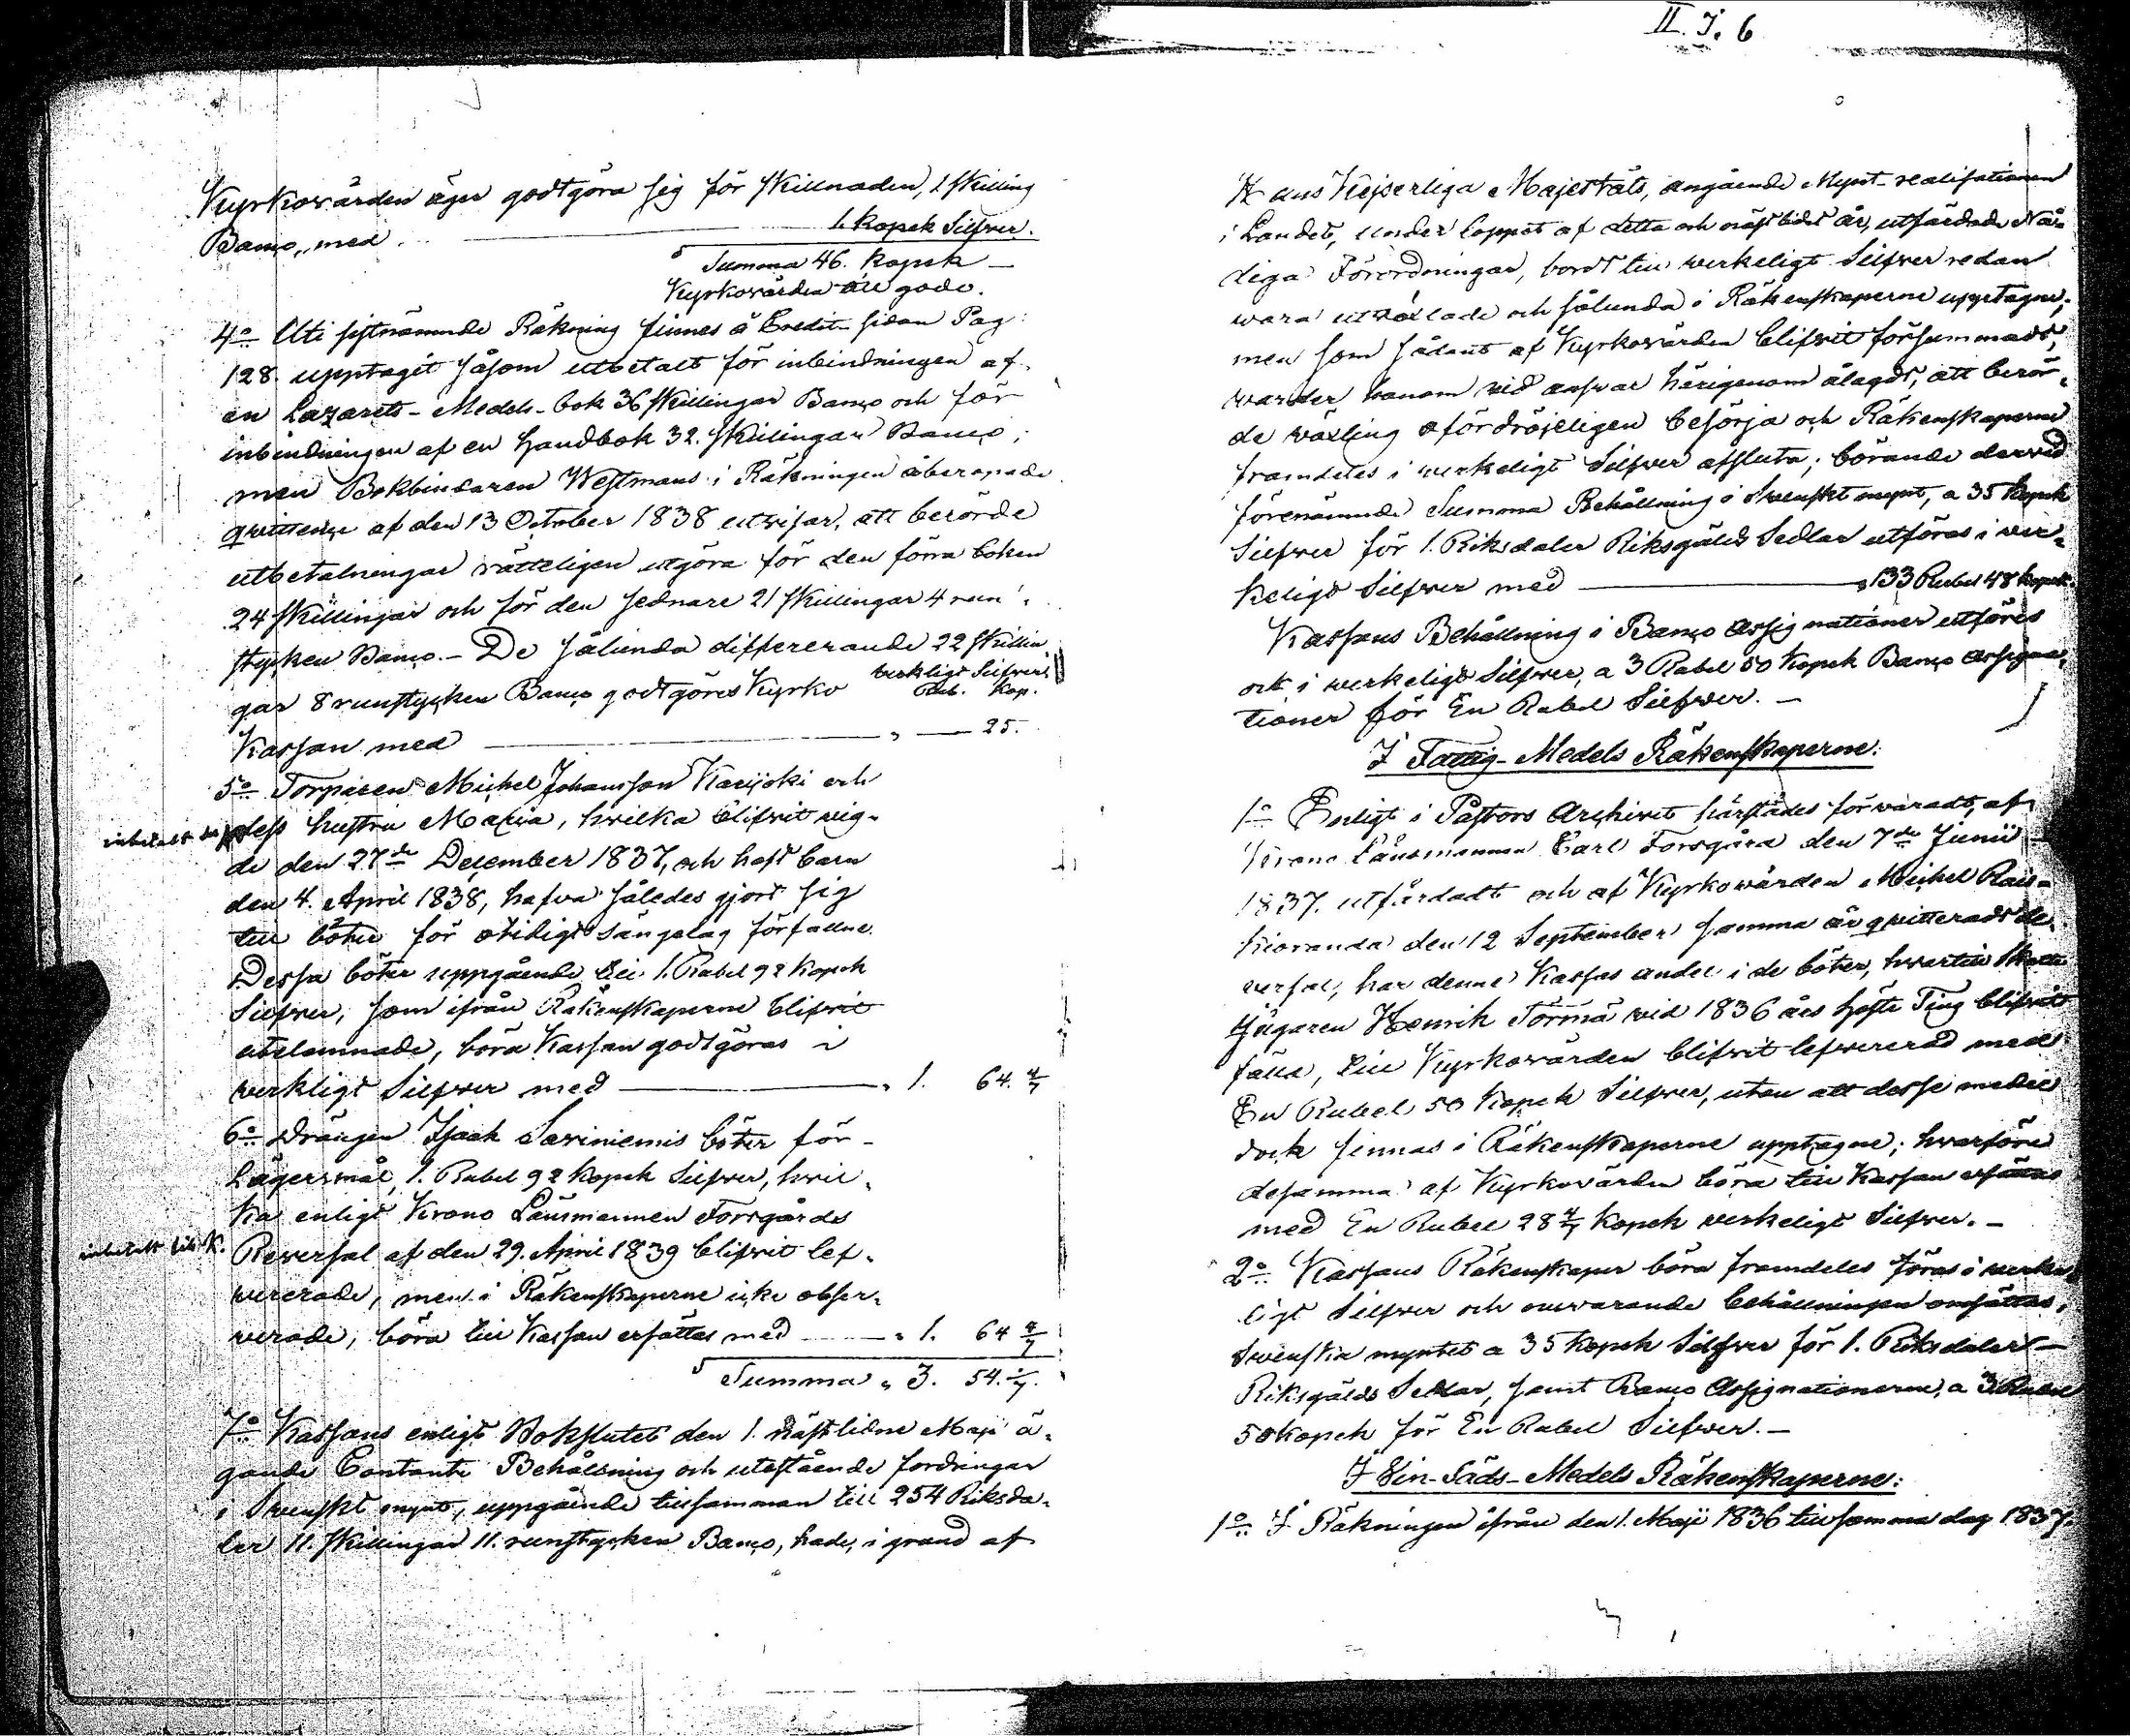 II. J. 6
Kyrkowärden äger godtgöra sig för skillnaden, 1 skilling
Banco, med 1. kopek Silfver.
Summa 46. kopek —
Kyrkowärden till godo.
4:o Uti sistnämnde Räkning finnes å Credit sidan Pag:
128. upptagit såsom utbetalt för inbindningen af
en Lazarets-Medels-bok 36 skillingar Banco och för
inbindningen af en handbok 32. skillingar Banco;
men Bokbindaren Westmans i Räkningen åberopade
qvittence af den 13 October 1838 utvisar, att berörde
utbetalningar rätteligen utgöra för den förra boken
24 skillingar och för den sednare 21 skillingar 4 run-
stycken Banco. — De sålunda differerande 22 skillin-
gar 8 runstycken Banco godtgöres Kyrko verkligt Silfver.
Rub. Kop.
Kassan med " — 25.
5:o Torparen Michel Johansson Karijoki och
inbetalt
dess hustru Maria, hvilka blifvit vig-
de den 27:de December 1837, och haft barn
den 4. April 1838, hafva således gjort sig
till böter för otidigt sängelag förfallne.
Dessa böter uppgående till 1. Rubel 92 kopek
Silfver, som ifrån Räkenskaperne blifvit
utelemnade, böra Kassan godtgöras i
verkligt Silfver med " 1. 64. 4/7
6:o Drängen Isaak Saviniemis böter för
Lägersmål, 1. Rubel 92 kopek Silfver, hvil-
ka enligt Krono Länsmannen Forsgårds
inbetalt till K.
Reversal af den 29. April 1839 blifvit lef-
vererade, men i Räkenskaperne icke obser-
verade, böra till Kassan ersättas med " 1. 64 4/7
Summa " 3. 54. 1/7.
7:o Kassans enligt Bokslutet den 1. sistlidne Maji ä-
gande Contante Behållning och utestående fordringar
i Svenskt mynt, uppgående tillsamman till 254 Riksda-
ler 11. skillingar 11. runstycken Banco, hade, i grund af
Hans Kejserliga Majestäts, angående Mynt-realisationen
i Landet, under loppet af detta och näst lidet år, utfärdade Nå-
diga Förordningar, bordt till werkeligt Silfver redan
wara utvexlade och sålunda i Räkenskaperne upptagne;
men som sådant af Kyrkowärden blifvit försummadt,
warder honom vid answar härigenom ålagdt, att berör-
de växling ofördröjeligen besörja och Räkenskaperne
framdeles i werkeligt Silfver afsluta; börande dervid
förenämnde Summa Behållning i Svenskt mynt, a 35 kopek
Silfver för 1. Riksdaler Riksgälds Sedlar utföras i ver-
keligt Silfver med " 133 Rubel 48 kopek.
Kassans Behållning i Banco Assignationer utföres
ock i werkeligt Silfver, a 3 Rubel 50 kopek Banco Assigna-
tioner för En Rubel Silfver. —
I Fattig-Medels Räkenskaperne:
1:o Enligt i Pastors Archivet härstädes förvaradt, af
Krono Länsmannen Carl Forsgård den 7:de Junii
1837. utfärdadt och af Kyrkowärden Michel Rais-
kioranda den 12 September samma år qvitteradt Re-
versal, har denne Kassas andel i de böter, hvartill Skatte
Ägaren Henrik Törmä vid 1836 års höste Ting blifvit
fälld, till Kyrkowärden blifvit lefvererad med
En Rubel 50 kopek Silfver, utan att desse medel
dock finnas i Räkenskaperne upptagne; hvarföre
desamma af Kyrkovärden böra till Kassan ersättas
med En Rubel 28 4/7 kopek verkeligt Silfver. —
2:o Kassans Räkenskaper böra framdeles föras i werke-
ligt Silfver och nuvarande behållningen omsättas,
Svenska myntet a 35 kopek Silfver för 1. Riksdaler
Riksgälds Sedlar, samt Banco Assignationerne, a 3 Rubel
50 kopek för En Rubel Silfver. —
I Vin-Säds-Medels Räkenskaperne:
1:o I Räkningen ifrån den 1. Maji 1836 till samma dag 1837.